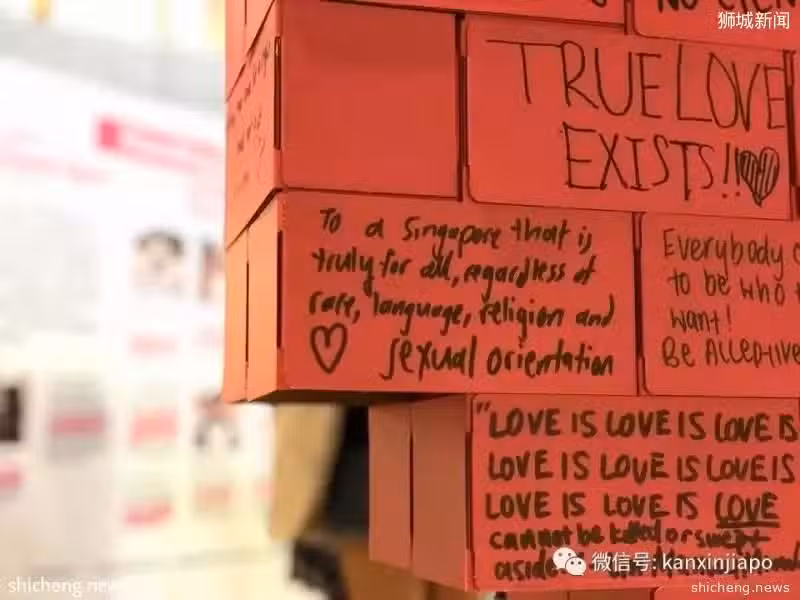 狮城新闻
TRUE LOVE
EXISTS!!
To a Singapore that is
truly for all, regardless of
race, language, religion and
sexual orientation
Everybody
to be who
want!
Be Acceptive
"LOVE IS LOVE IS LOVE IS
LOVE IS LOVE IS LOVE IS
LOVE IS LOVE IS LOVE
cannot be killed or swept
aside
微信号: kanxinjiapo
shicheng.news
shicheng.news